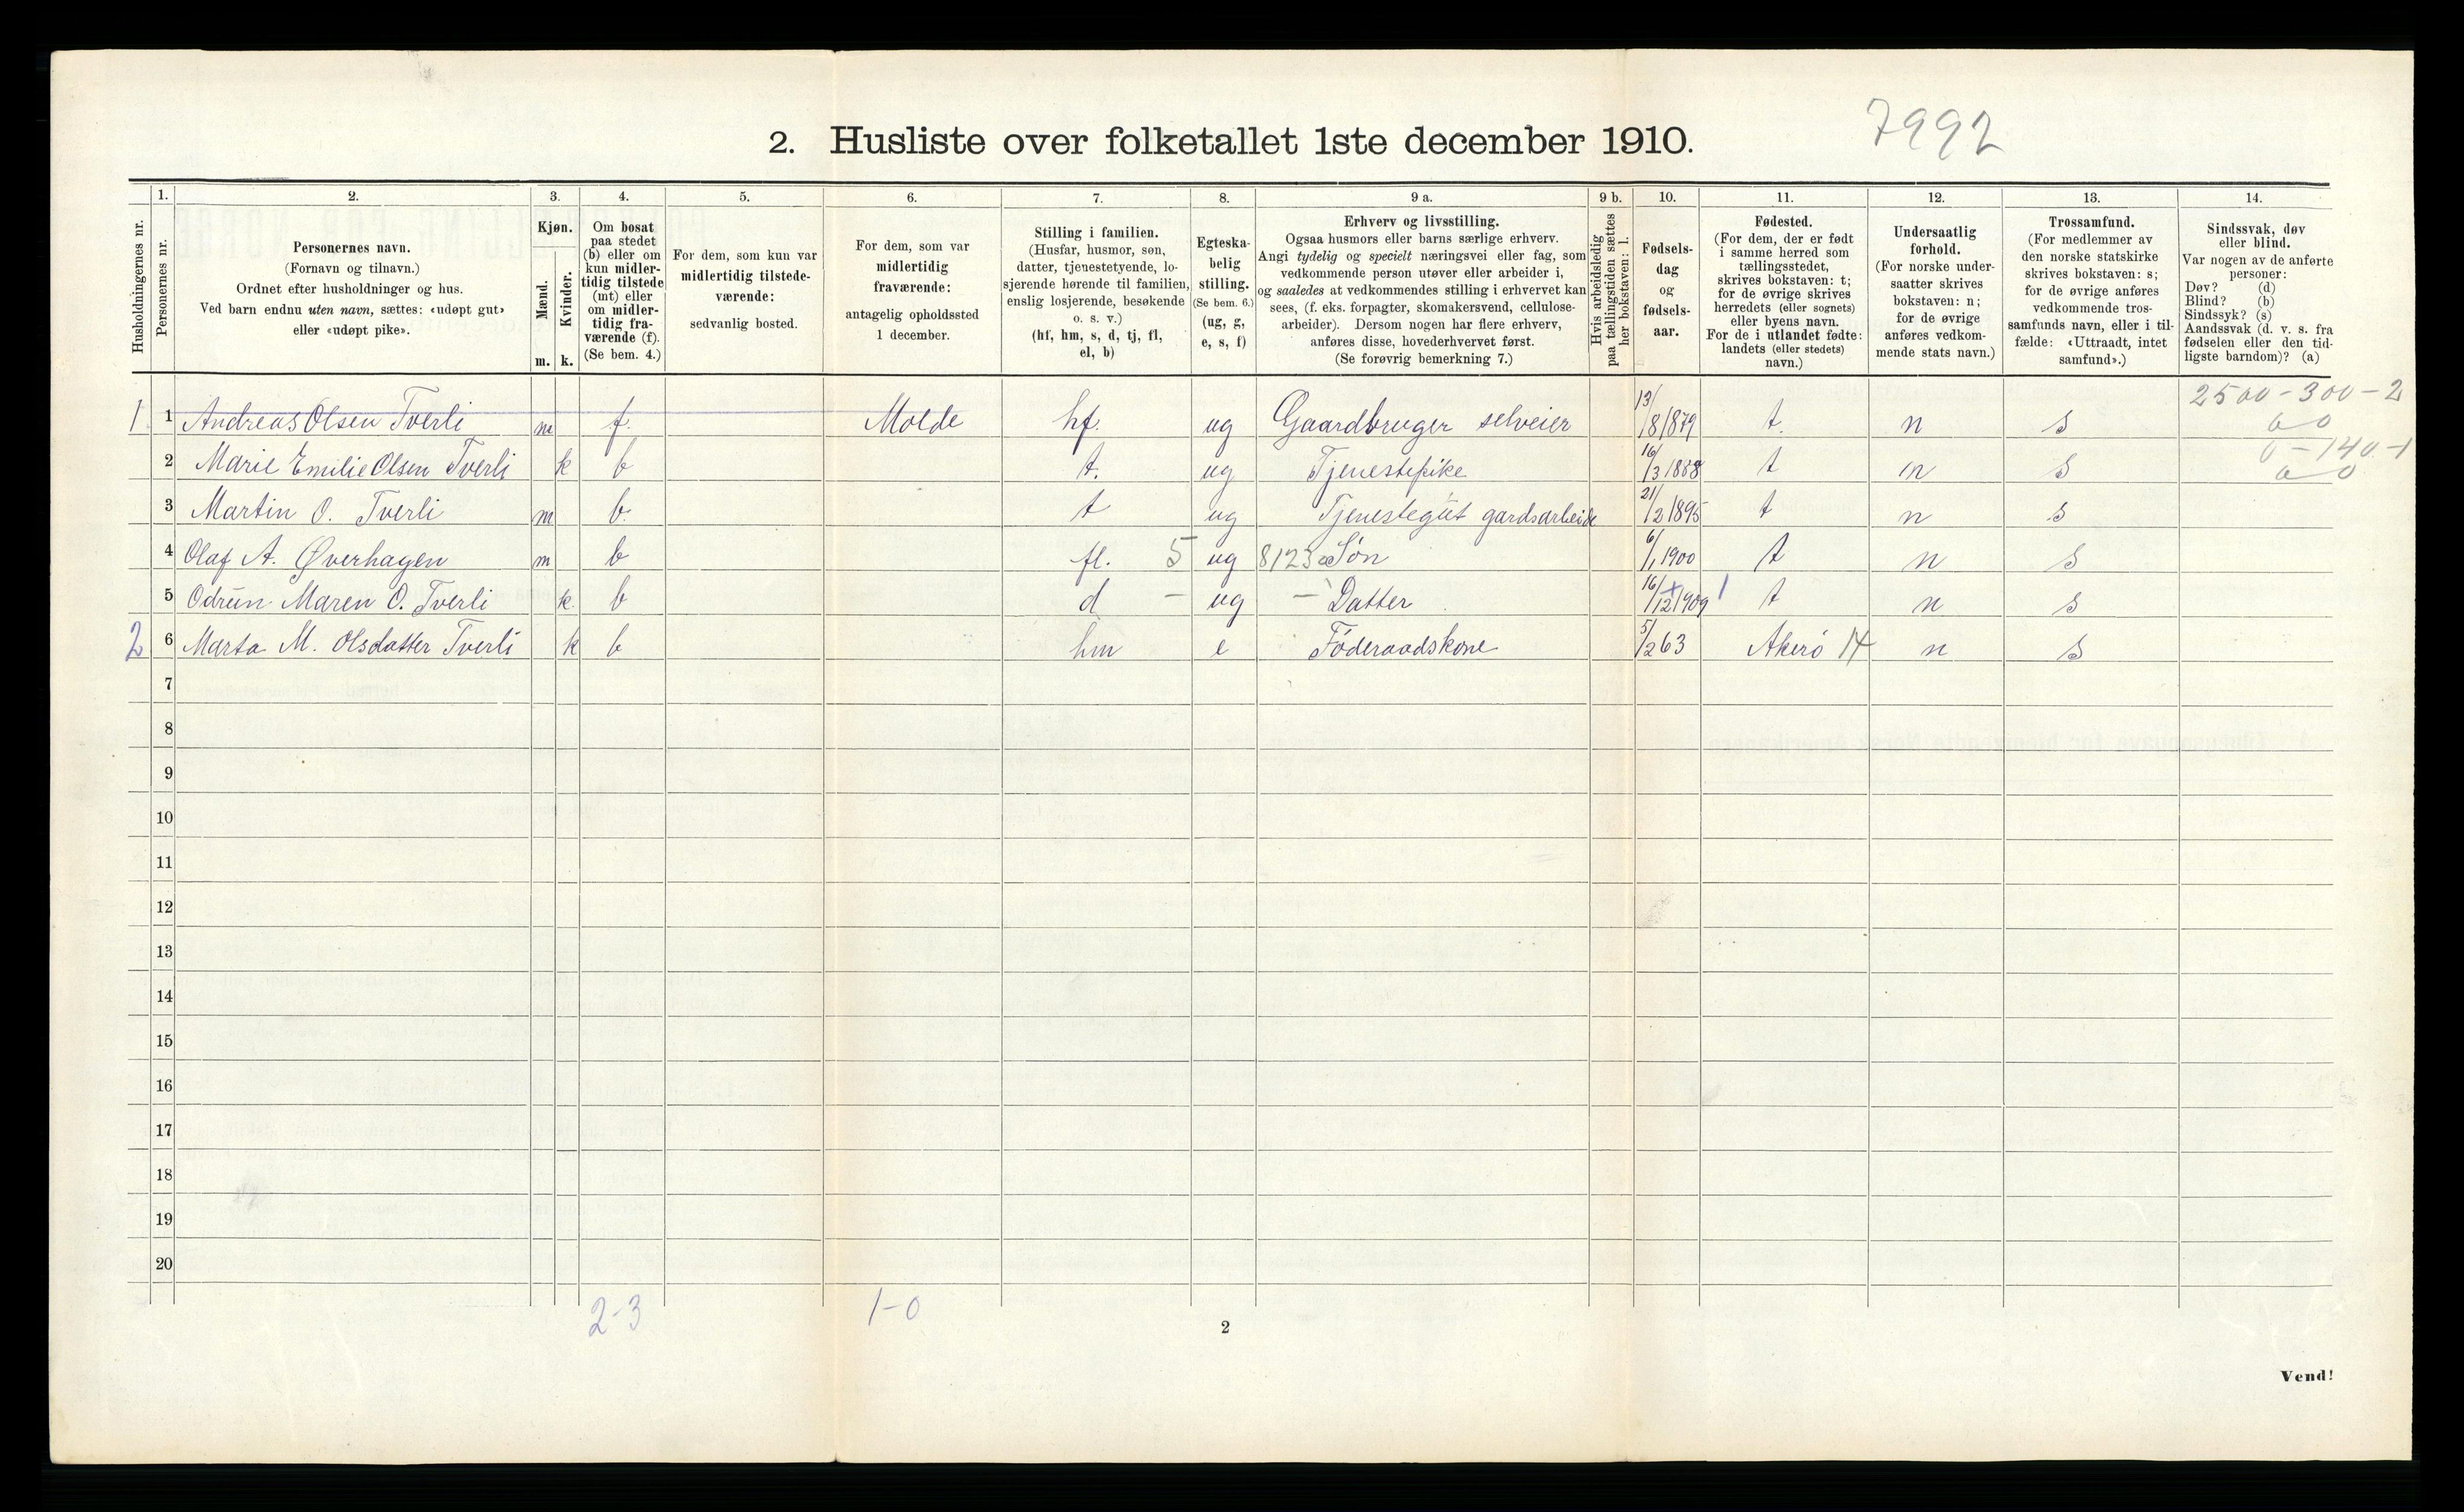 7992
2. Husliste over folketallet 1ste december 1910.
Husholdningernes nr.
1.
Personernes nr.
2.
Personernes navn.
(Fornavn og tilnavn.)
Ordnet efter husholdninger og hus.
Ved barn endnu uten navn, sættes: «udøpt gut»
eller «udøpt pike».
3.
Kjøn.
Mænd.
Kvinder.
m. k.
4.
Om bosat
paa stedet
(b) eller om
kun midler-
tidig tilstede
(mt) eller
om midler-
tidig fra-
værende (f).
(Se bem. 4.)
5.
For dem, som kun var
midlertidig tilstede-
værende:
sedvanlig bosted.
6.
For dem, som var
midlertidig
fraværende:
antagelig opholdssted
1 december.
7.
Stilling i familien.
(Husfar, husmor, søn,
datter, tjenestetyende, lo-
sjerende hørende til familien,
enslig losjerende, besøkende
o. s. v.)
(hf, hm, s, d, tj, fl,
el, b)
8.
Egteska-
belig
stilling.
(Se bem. 6.)
(ug, g,
e, s, f)
9 a.
Erhverv og livsstilling.
Ogsaa husmors eller barns særlige erhverv.
Angi tydelig og specielt næringsvei eller fag, som
vedkommende person utøver eller arbeider i,
og saaledes at vedkommendes stilling i erhvervet kan
sees, (f. eks. forpagter, skomakersvend, cellulose-
arbeider). Dersom nogen har flere erhverv,
anføres disse, hovederhvervet først.
(Se forøvrig bemerkning 7.)
9 b.
Hvis arbeidsledig
paa tællingstiden sættes
her bokstaven: l.
10.
Fødsels-
dag
og
fødsels-
aar.
11.
Fødested.
(For dem, der er født
i samme herred som
tællingsstedet,
skrives bokstaven: t;
for de øvrige skrives
herredets (eller sognets)
eller byens navn.
For de i utlandet fødte:
landets (eller stedets)
navn.)
12.
Undersaatlig
forhold.
(For norske under-
saatter skrives
bokstaven: n;
for de øvrige
anføres vedkom-
mende stats navn.)
13.
Trossamfund.
(For medlemmer av
den norske statskirke
skrives bokstaven: s;
for de øvrige anføres
vedkommende tros-
samfunds navn, eller i til-
fælde: «Uttraadt, intet
samfund».)
14.
Sindssvak, døv
eller blind.
Var nogen av de anførte
personer:
Døv? (d)
Blind? (b)
Sindssyk? (s)
Aandssvak (d. v. s. fra
fødselen eller den tid-
ligste barndom)? (a)
2500-300-2
1 1 Andreas Olsen Tverli m f. Molde hf. ug Gaardbruger selveier 13/8 1879 t. n s 0 0
0-140-1
2 Marie Emilie Olsen Tverli k b t. ug Tjenestepike 16/3 1888 t n s 0 0
3 Martin O. Tverli m b. t ug Tjenestegut gardsarbeide 21/2 1895 t n s
4 Olaf A. Øverhagen m b fl. 5 ug 8123 Søn 6/1 1900 t n s
5 Odrun Maren O. Tverli k b d - ug - Datter 16/12 1909 1 t n s
2 6 Marta M. Olsdatter Tverli k b hm e Føderaadskone 5/2 63 Akerö 14 n s
7
8
9
10
11
12
13
14
15
16
17
18
19
20
2-3 1-0
2
Vend!